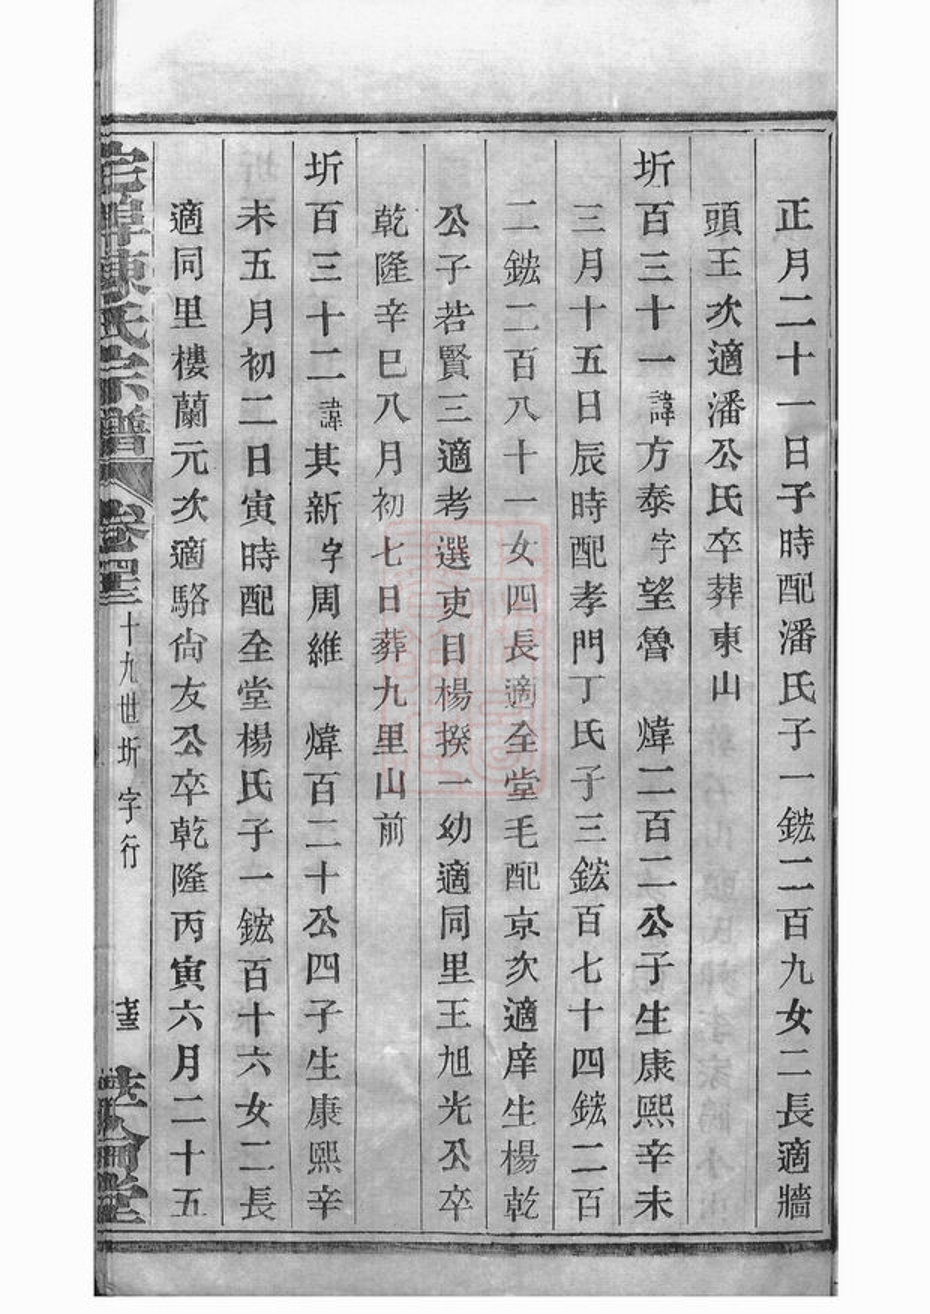 正月二十一日子時配潘氏子一鋐二百九女二長適牆
頭王次適潘公氏卒葬東山
圻百三十一諱方泰字望魯　煒二百二公子生康熙辛未
三月十五日辰時配孝門丁氏子三鋐百七十四鋐二百
二鋐二百八十一女四長適全堂毛配京次適庠生楊乾
公子若賢三適考選吏目楊揆一幼適同里王旭光公卒
乾隆辛巳八月初七日葬九里山前
圻百三十二諱其新字周維　煒百二十公四子生康熙辛
未五月初二日寅時配全堂楊氏子一鋐百十六女二長
適同里樓蘭元次適駱尙友公卒乾隆丙寅六月二十五
陳氏宗譜　卷四　十九世圻字行　堂